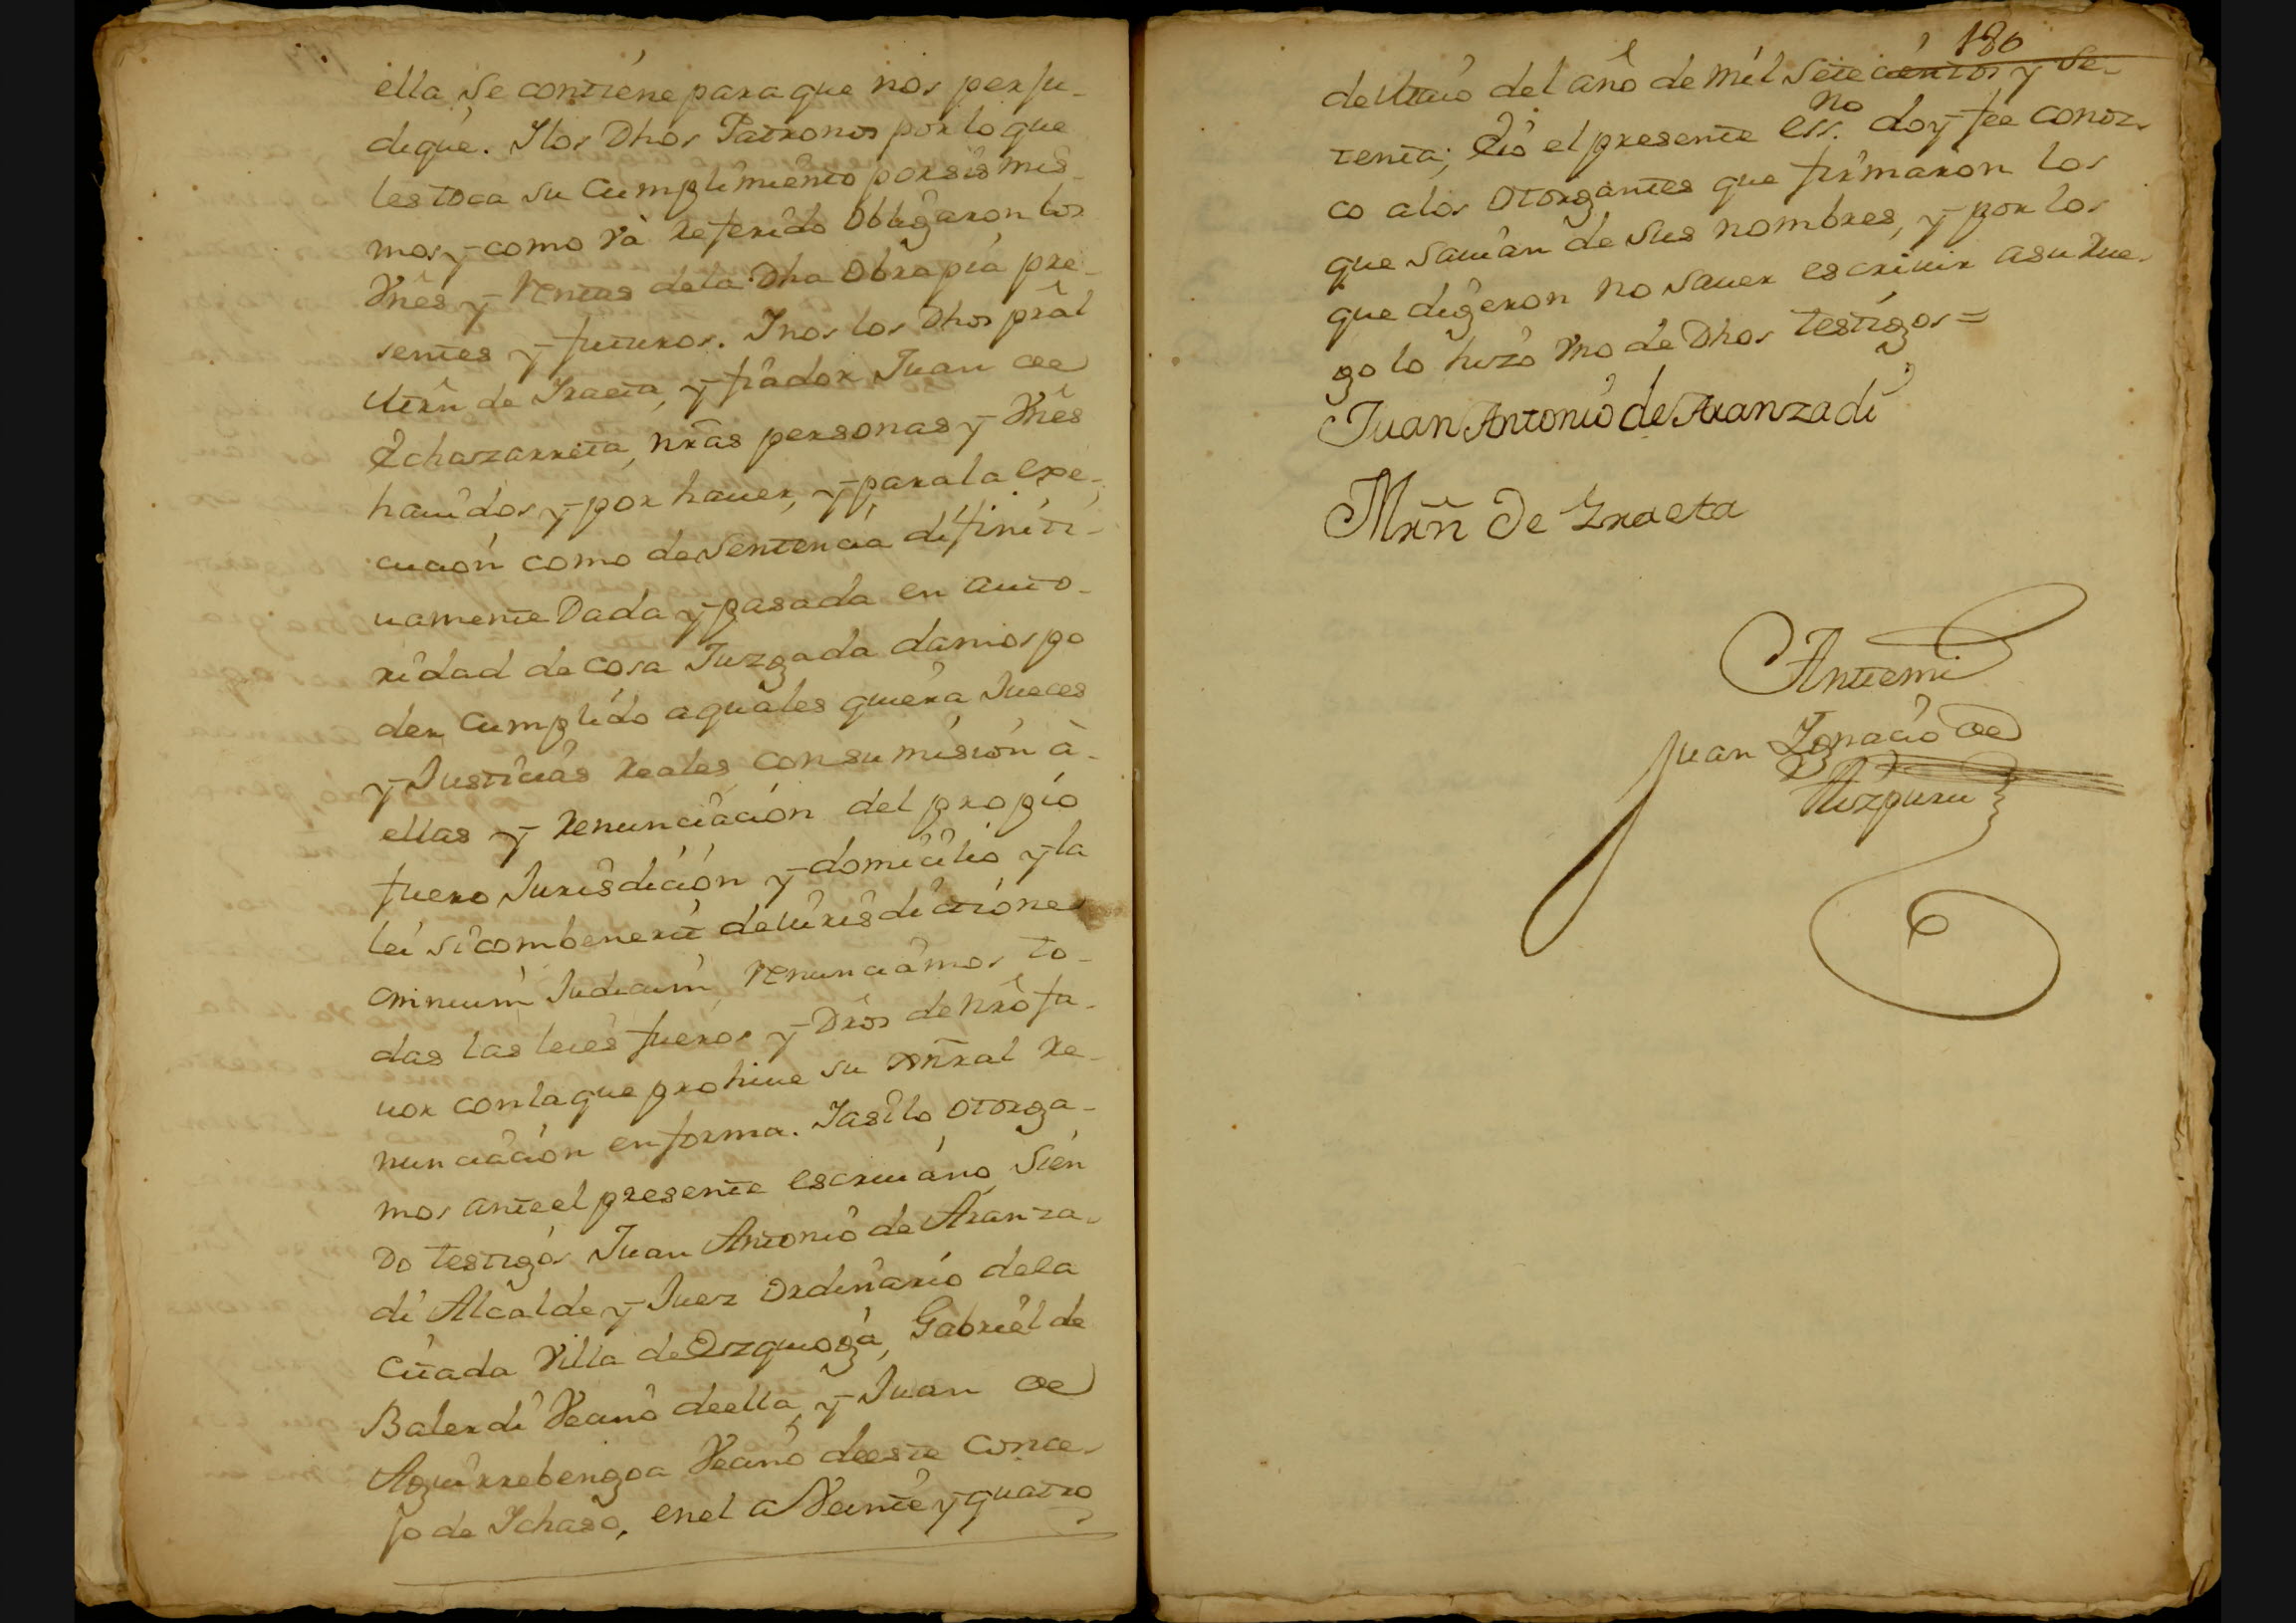 ella se contiene para que nos perju-
dique. Ilos Dhos Patronos por lo que
les toca su Cumplimiento por sis mis-
mos y como va referido obligaron los
Vnês y rentas de la Dha obrapia pre-
sentes y futuros. I nos los Dhos prâl
Mrñ de Iraeta, y fiador Juan de
Echazarreta, nrãs personas y Vnês
hauidos y por hauer, y para la exe-
cucion como de sentencia difiniti-
uamente Dada y pasada en auto-
ridad de cosa Juzgada damos po
der cumplido a quales quiera Jueces
y Justicias reales con sumision à
ellas y renunciacion del propio
fuero Jurisdicion y domicilio y la
lei si combenerit de Iurisdictione
omnium Judicum, renunciamos to-
das las leies fueros y Drõs de nrõ fa-
uor con la que prohiue su gñral re-
nunciacion en forma. I asi lo otorga-
mos ante el presente escriuano, sien
do testigos Juan Antonio de Aranza-
di Alcalde y Juez ordinario de la
citada Villa de Ezquioga, Gabriel de
Balerdi Vecino de ella, y Juan de
Aguirrebengoa Vecino de este Conce-
jo de Ichaso, en el a Veinte y quatro
180
de Junio del año de mil setecientos y se-
tenta; E io el presente ess.no doy fee conoz-
co alos otorgantes que firmaron los
que sauian de sus nombres, y por los
que digeron no sauer escriuir a su rue-
go lo hizo vno de Dhos testigos =
Juan Antonio de Aranzadi
Mrñ de Iraeta
Antemi
Juan Ignacio de
Aizpuru